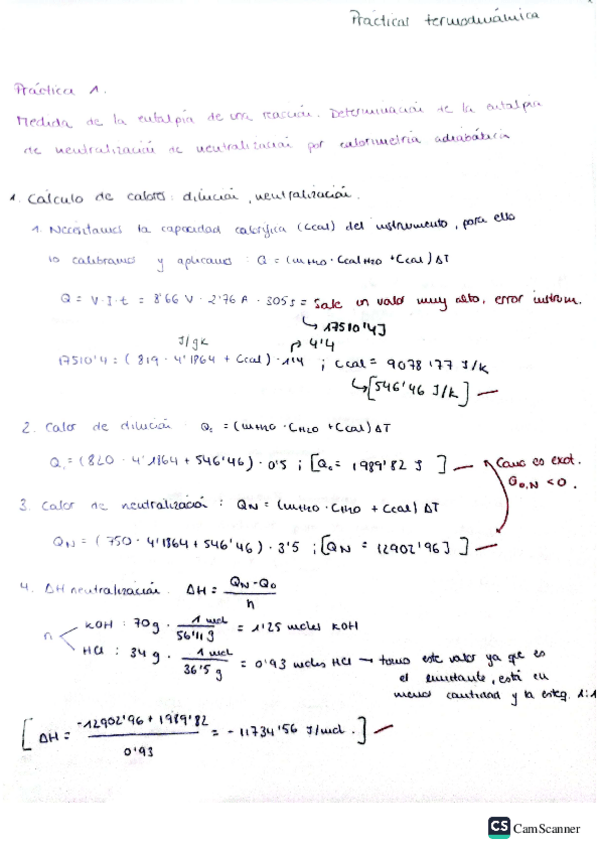 Prácticas termodinámica
Práctica 1.
Medida de la entalpía de una reacción. Determinación de la entalpía
de neutralización de neutralización por calorimetría adiabática
1. Cálculo de calores: dilución, neutralización.
1. Necesitamos la capacidad calorífica (Ccal) del instrumento, para ello
lo calibramos y aplicamos: Q = (mH2O · CcalH2O + Ccal) ΔT
Q = V · I · t = 8'66 V · 2'76 A · 305 s = Sale un valor muy alto, error instrum.
↳ 17510'4 J
J/gK 4'4
17510'4 = (819 · 4'1864 + Ccal) · 1'4 ; Ccal = 9078'77 J/K
↳ [546'46 J/K]
2. Calor de dilución: Q0 = (mH2O · CH2O + Ccal) ΔT
Q0 = (820 · 4'1864 + 546'46) · 0'5 ; [Q0 = 1989'82 J] Como es exot.
Q0,N < 0.
3. Calor de neutralización: QN = (mH2O · CH2O + Ccal) ΔT
QN = (750 · 4'1864 + 546'46) · 3'5 ; [QN = 12902'96 J]
4. ΔH neutralización. ΔH = QN - Q0 / n
n KOH: 70 g · 1 mol / 56'11 g = 1'25 moles KOH
HCl: 34 g · 1 mol / 36'5 g = 0'93 moles HCl → tomo este valor ya que es
el limitante, está en
menor cantidad y la esteq. 1:1
[ΔH = -12902'96 + 1989'82 / 0'93 = -11734'56 J/mol.]
CS CamScanner